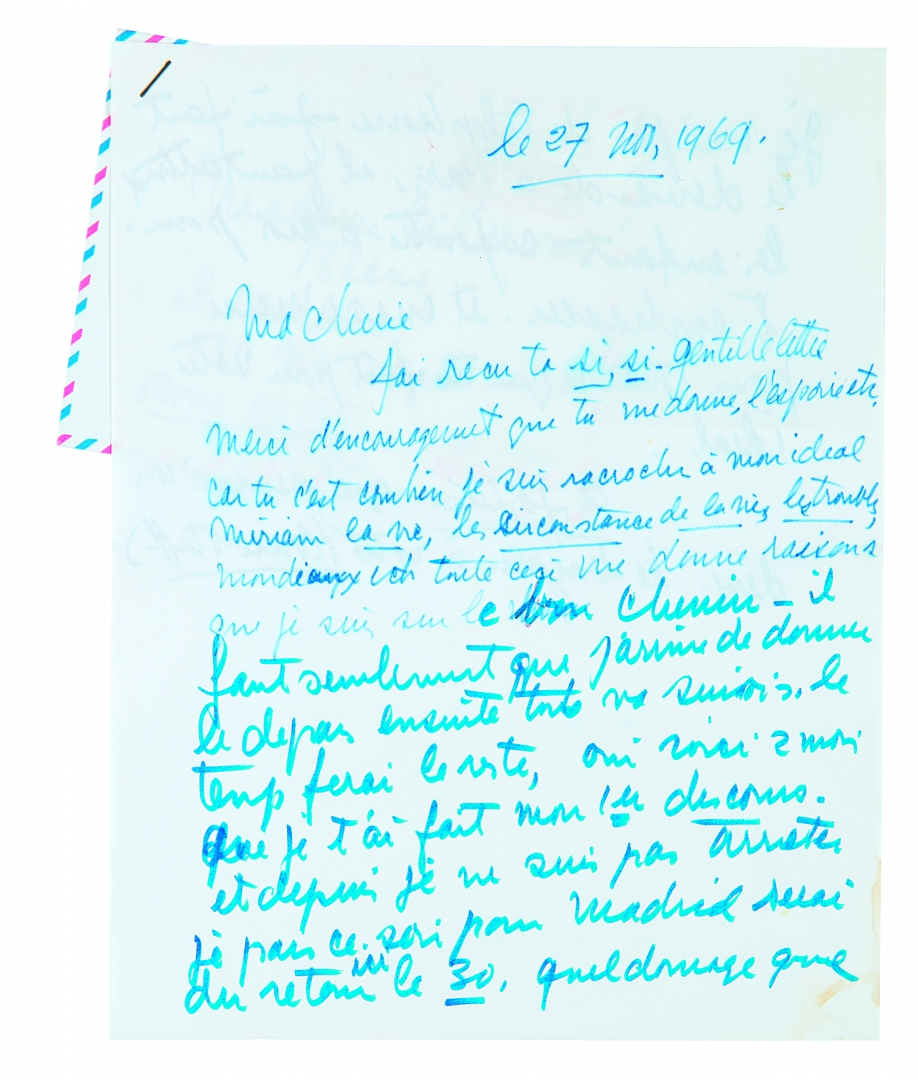 le 27 nov, 1969.
Ma Cherie
J'ai recu ta si, si-gentille lettre
merci d'encouragement que tu me donne, l'espoir etc,
car tu c'est combien je suis racroche à mon ideal
Miriam la vie, les circonstance de la vie, les troubles,
mondiaux toute ceci me donne raisons
que je suis sur le bon Chemin - il
faut seulement que j'arrive de donner
le depar ensuite tout va suivois, le
temp ferai le reste, oui voici 2 mois
que je t'ai fait mon 1er discours.
et depuis je ne suis pas arreter
je pars ce soir pour Madrid serai
du retour ici le 30, quel domage que